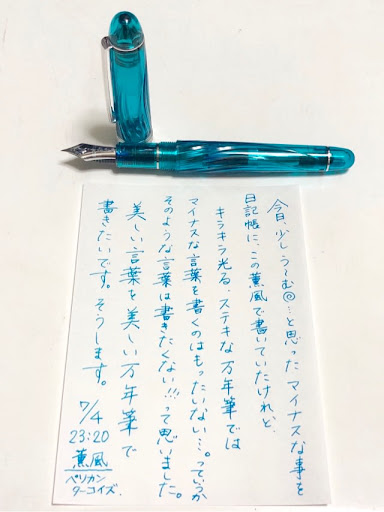 今日、少しう～む◎…と思ったマイナスな事を
日記帳に、この薫風で書いていたけれど、
キラキラ光る、ステキな万年筆では
マイナスな言葉を書くのはもったいない…。っていうか
そのような言葉は書きたくない!!!って思いました。
美しい言葉を美しい万年筆で
書きたいです。そうします。
7/4
23:20
薫風
ペリカン
ターコイズ.